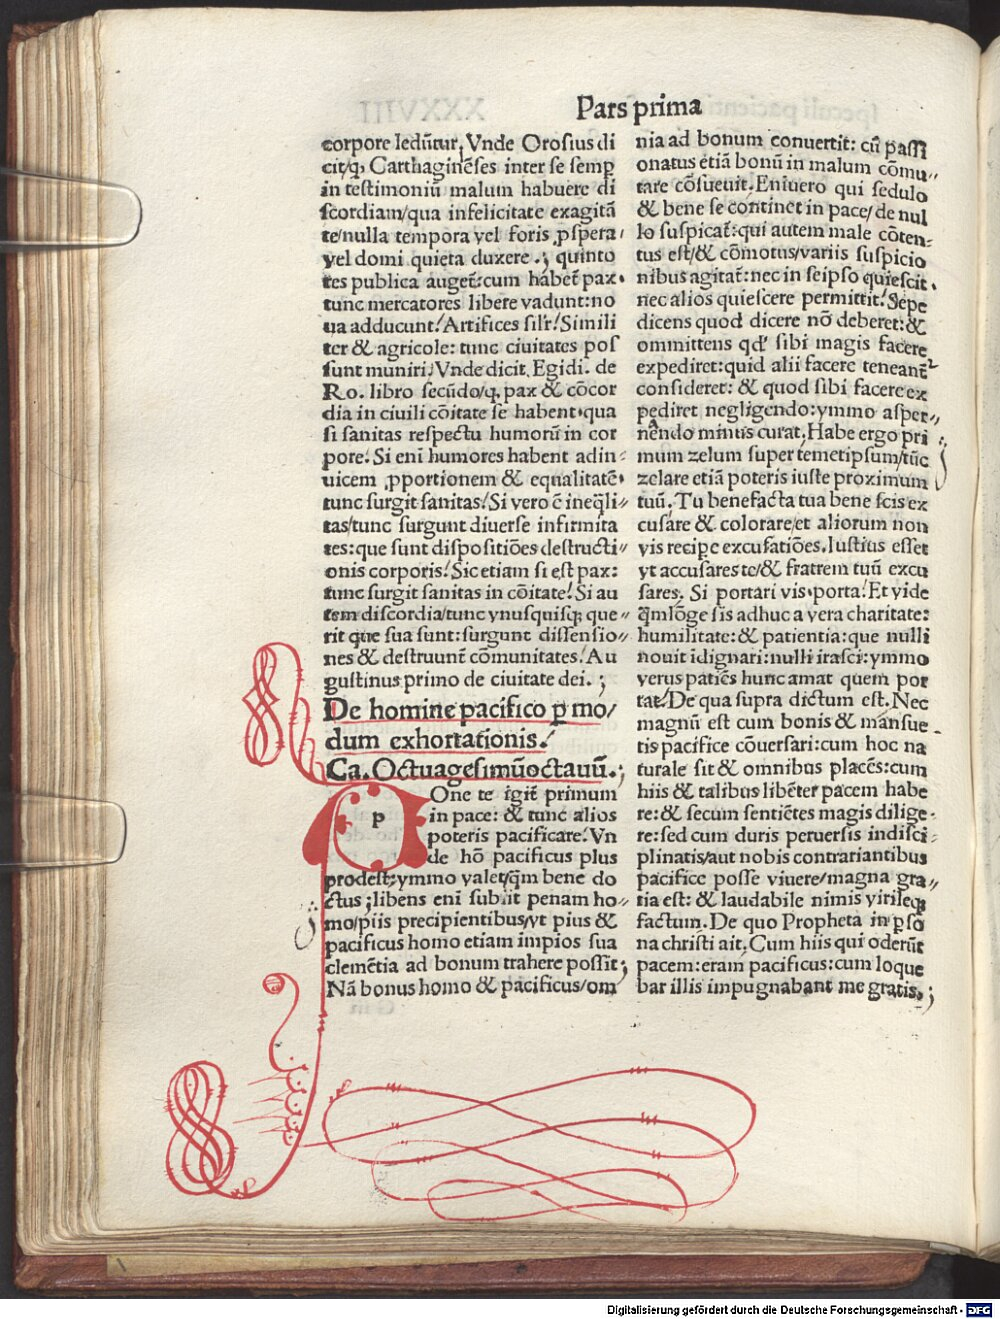 Pars prima
corpore ledūtur, Vnde Orosius di
cit/ꝙ, Carthaginēses inter se semꝑ
in testimoniū malum habuere di
scordiam/qua infelicitate exagitā
te/nulla tempora vel foris ꝓspera/
vel domi quieta duxere.; quinto
res publica auget᷑:cum habet᷑ pax.
tunc mercatores libere vadunt:no
ua adducunt! Artifices sil'r! Simili
ter & agricole: tunc ciuitates pos
sunt muniri, Vnde dicit. Egidi. de
Ro. libro secūdo/ꝙ, pax & cōcor
dia in ciuili cōitate se habent.qua
si sanitas respectu humorū in cor
pore! Si eni humores habent adin⸗
uicem ꝓportionem & equalitatē.
tunc surgit sanitas! Si vero ē ineq̄li⸗
tas/tunc surgunt diuerse infirmita
tes:que sunt dispositiōes destructi⸗
onis corporis! Sic etiam si est pax:
tunc surgit sanitas in cōitate! Si au
tem discordia/tunc vnusquisꝙ que⸗
rit que sua sunt:surgunt dissensio⸗
nes & destruunt cōmunitates! Au
gustinus primo de ciuitate dei.;
De homine pacifico ꝑ mo/
dum exhortationis!
Ca. Octuagesimūoctauū.;
p
One te igit᷑ primum
in pace: & tunc alios
poteris pacificare! Vn
de hō pacificus plus
prodest:ymmo valet/q̄m bene do
ctus;libens eni subiit penam ho⸗
mo/piis precipientibus/vt pius &
pacificus homo etiam impios sua
clemētia ad bonum trahere possit;
Nā bonus homo & pacificus/om
nia ad bonum conuertit: cū passi
onatus etiā bonū in malum cōmu⸗
tare cōsueuit. Enivero qui sedulo
& bene se continet in pace/ de nul
lo suspicat᷑:qui autem male cōten⸗
tus est/& cōmotus/variis suspicio
nibus agitat᷑:nec in seipso quiescit.
nec alios quiescere permittit! Sepe
dicens quod dicere nō deberet:&
ommittens qd' sibi magis facere
expediret:quid alii facere teneant᷑
consideret: & quod sibi facere ex
pediret negligendo:ymmo asper⸗
nēndo minus curat. Habe ergo pri
mum zelum super temetipsum/tūc
zelare etiā poteris iuste proximum
tuū. Tu benefacta tua bene scis ex
cusare & colorare/et aliorum non
vis recipe excusatiōes. Iustius esset
vt accusares te/& fratrem tuū excu
sares. Si portari vis.porta! Et vide
q̄mlōge sis adhuc a vera charitate:
humilitate:& patientia:que nulli
nouit idignari:nulli irasci:ymmo
verus patiēs hunc amat quem por
tat! De qua supra dictum est. Nec
magnū est cum bonis & mansue⸗
tis pacifice cōuersari:cum hoc na
turale sit & omnibus placēs:cum
hiis & talibus libēter pacem habe
re:& secum sentiētes magis dilige⸗
re:sed cum duris peruersis indisci⸗
plinatis/aut nobis contrariantibus
pacifice posse viuere/magna gra⸗
tia est: & laudabile nimis virileꝙ
factum. De quo Propheta in ꝑso
na christi ait. Cum hiis qui oderūt
pacem:eram pacificus:cum loque
bar illis impugnabant me gratis.;
Digitalisierung gefördert durch die Deutsche Forschungsgemeinschaft - DFG